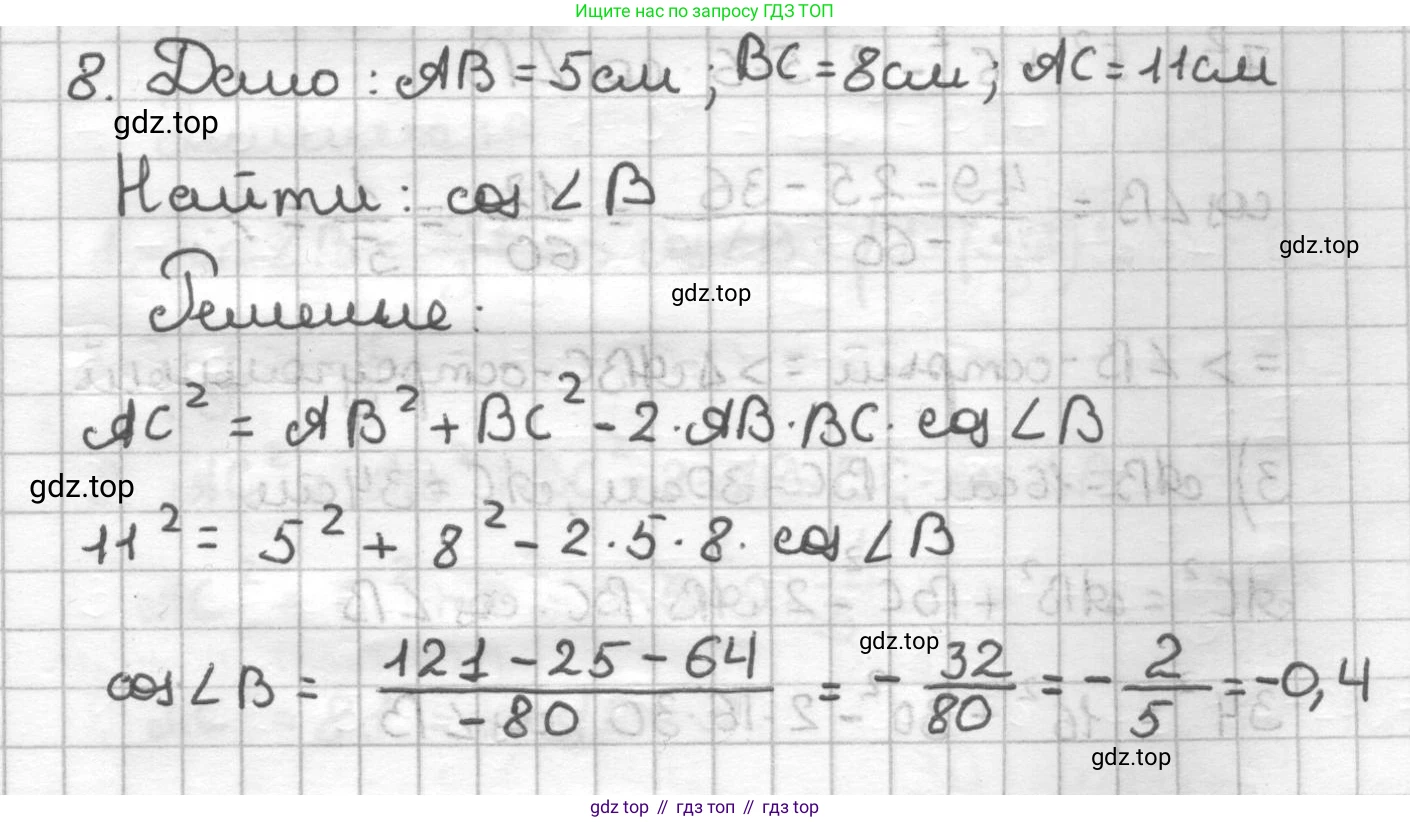 Ищите нас по запросу ГДЗ ТОП
8. Дано : AB = 5см ; BC = 8см ; AC = 11см
gdz.top
Найти : cos ∠ B
gdz.top
gdz.top
Решение :
AC² = AB² + BC² - 2 · AB · BC · cos ∠ B
gdz.top
11² = 5² + 8² - 2 · 5 · 8 · cos ∠ B
gdz.top
cos ∠ B = (121 - 25 - 64)/(-80) = - 32/80 = - 2/5 = -0,4
gdz.top
gdz top // гдз топ // gdz top